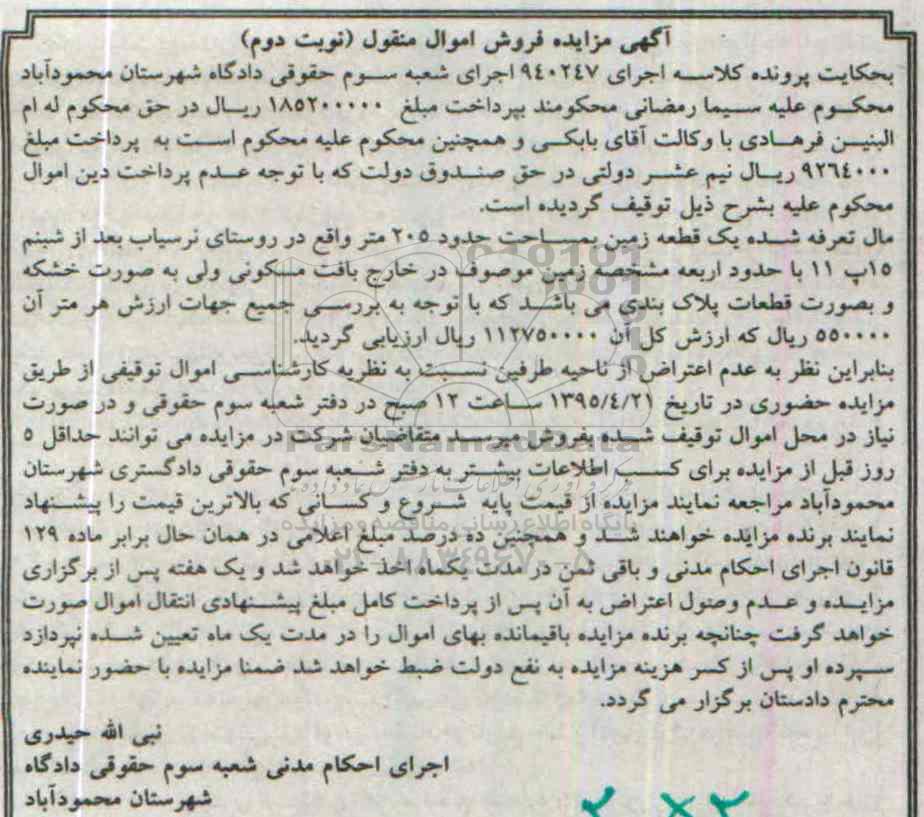 آگهی مزایده فروش اموال منقول (نوبت دوم)
بحکایت پرونده کلاسه اجرای ۹٤۰۲٤۷ اجرای شعبه سوم حقوقی دادگاه شهرستان محمودآباد
محکوم علیه سیما رمضانی محکومند بپرداخت مبلغ ۱۸۵۲۰۰۰۰۰ ریال در حق محکوم له ام
البنین فرهادی با وکالت آقای بابکی و همچنین محکوم علیه محکوم است به پرداخت مبلغ
۹۲٦٤۰۰۰ ریال نیم عشر دولتی در حق صندوق دولت که با توجه عدم پرداخت دین اموال
محکوم علیه بشرح ذیل توقیف گردیده است.
مال تعرفه شده یک قطعه زمین بمساحت حدود ۲۰۵ متر واقع در روستای نرسیاب بعد از شبنم
۱۵پ ۱۱ با حدود اربعه مشخصه زمین موصوف در خارج بافت مسکونی ولی به صورت خشکه
و بصورت قطعات پلاک بندی می باشد که با توجه به بررسی جمیع جهات ارزش هر متر آن
۵۵۰۰۰۰ ریال که ارزش کل آن ۱۱۲۷۵۰۰۰۰ ریال ارزیابی گردید.
بنابراین نظر به عدم اعتراض از ناحیه طرفین نسبت به نظریه کارشناسی اموال توقیفی از طریق
مزایده حضوری در تاریخ ۱۳۹۵/٤/۲۱ ساعت ۱۲ صبح در دفتر شعبه سوم حقوقی و در صورت
نیاز در محل اموال توقیف شده بفروش میرسد متقاضیان شرکت در مزایده می توانند حداقل ۵
روز قبل از مزایده برای کسب اطلاعات بیشتر به دفتر شعبه سوم حقوقی دادگستری شهرستان
محمودآباد مراجعه نمایند مزایده از قیمت پایه شروع و کسانی که بالاترین قیمت را پیشنهاد
نمایند برنده مزایده خواهند شد و همچنین ده درصد مبلغ اعلامی در همان حال برابر ماده ۱۲۹
قانون اجرای احکام مدنی و باقی ثمن در مدت یکماه اخذ خواهد شد و یک هفته پس از برگزاری
مزایده و عدم وصول اعتراض به آن پس از پرداخت کامل مبلغ پیشنهادی انتقال اموال صورت
خواهد گرفت چنانچه برنده مزایده باقیمانده بهای اموال را در مدت یک ماه تعیین شده نپردازد
سپرده او پس از کسر هزینه مزایده به نفع دولت ضبط خواهد شد ضمنا مزایده با حضور نماینده
محترم دادستان برگزار می گردد.
نبی الله حیدری
اجرای احکام مدنی شعبه سوم حقوقی دادگاه
شهرستان محمودآباد
۲ × ۲
ParsNamadData
پایگاه اطلاع رسانی مناقصه و مزایده